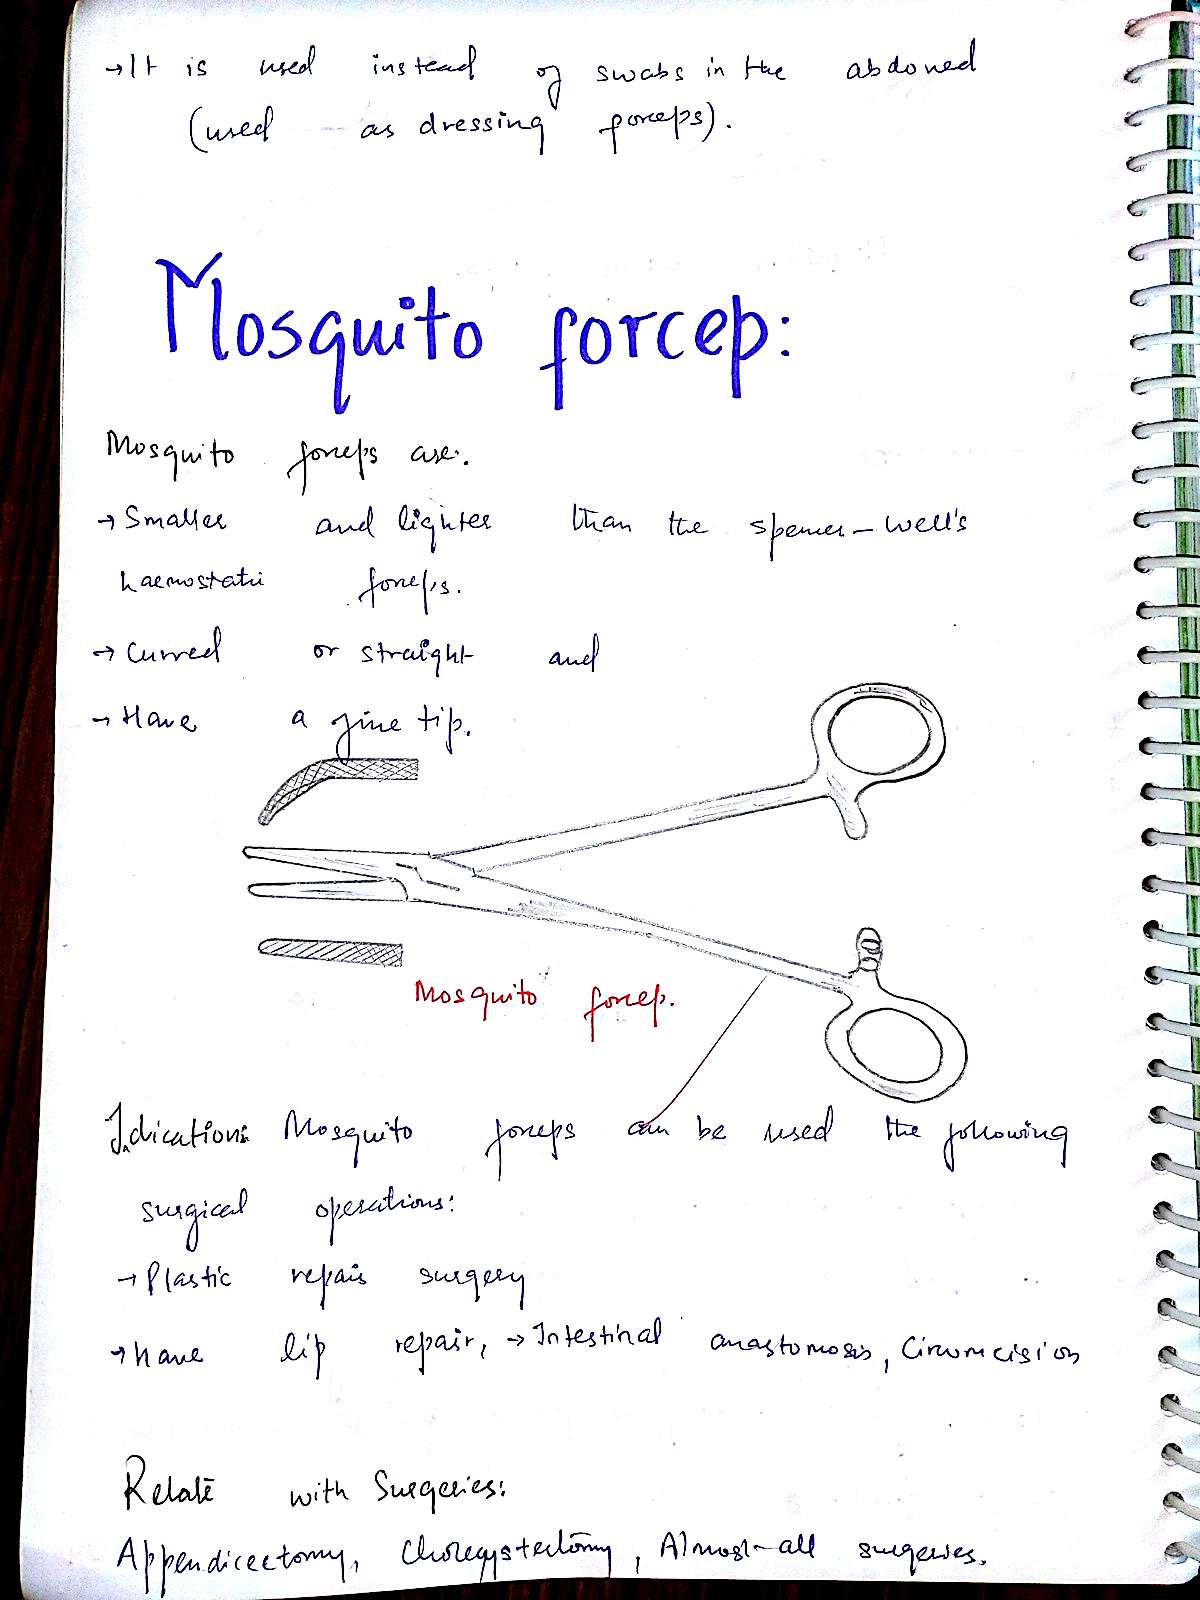 →It is used instead of swabs in the abdoned
(used as dressing forceps).
Mosquito forcep:
Mosquito forceps are.
→ Smaller and lighter than the spencer-well's
haemostatic forceps.
→ Curved or straight and
→ Have a fine tip.
Mosquito forcep.
Indication: Mosquito forceps can be used the following
surgical operations:
→ Plastic repair surgery
→ have lip repair, → Intestinal anastomosis, Circumcision
Relate with Surgeries:
Appendicectomy, Cholecystectomy, Almost-all surgeries.